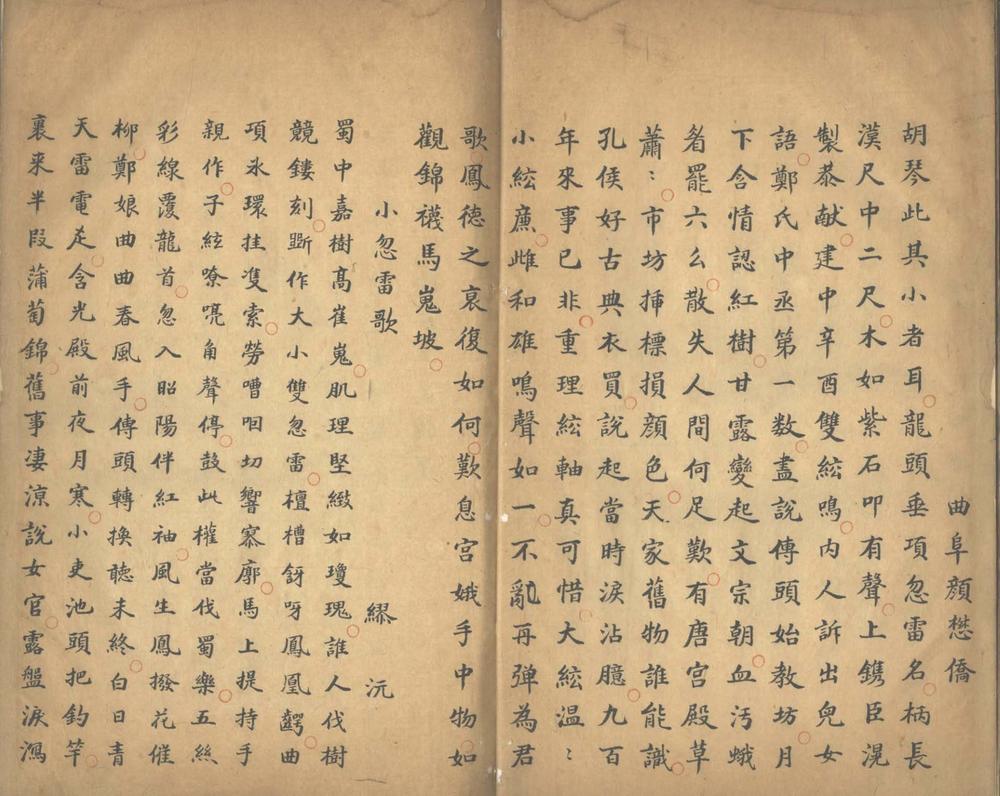 曲阜顏懋僑
胡琴此其小者耳龍頭垂項忽雷名柄長
漢尺中二尺木如紫石叩有聲上鐫臣滉
製恭献建中辛酉雙絃鳴內人訴出兒女
語鄭氏中丞第一数盡說傳頭始教坊月
下含情認紅樹甘露變起文宗朝血汚蛾
眉罷六么散失人間何足歎有唐宮殿草
蕭:市坊挿標損顔色天家舊物誰能識
孔侯好古典衣買說起當時淚沾臆九百
年來事已非重理絃軸真可惜大絃温:
小絃廉雌和雄鳴聲如一不亂再弾為君
歌鳳德之衰復如何歎息宮娥手中物如
觀錦襪馬嵬坡
小忽雷歌
繆沅
蜀中嘉樹髙崔嵬肌理堅緻如瓊瑰誰人伐樹
競鏤刻斲作大小雙忽雷檀槽谺呀鳳凰齶曲
項氷環挂隻索勞嘈呬切響寥廓馬上提持手
親作子絃嘹喨角聲停鼓此權當伐蜀樂五絲
彩線覆龍首忽入昭陽伴紅袖風生鳳撥花催
柳鄭娘曲曲春風手傳頭轉換聽未終白日青
天雷電走含光殿前夜月寒小吏池頭把釣竿
裹來半叚蒲萄錦舊事凄涼說女官露盤淚瀉